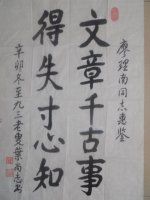 廖理南同志惠鉴
文章千古事
得失寸心知
辛卯冬至九三老叟叶尚志书